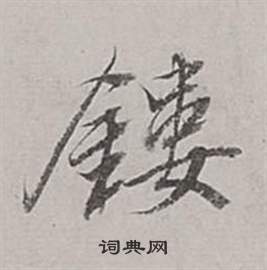 鏤
词典网